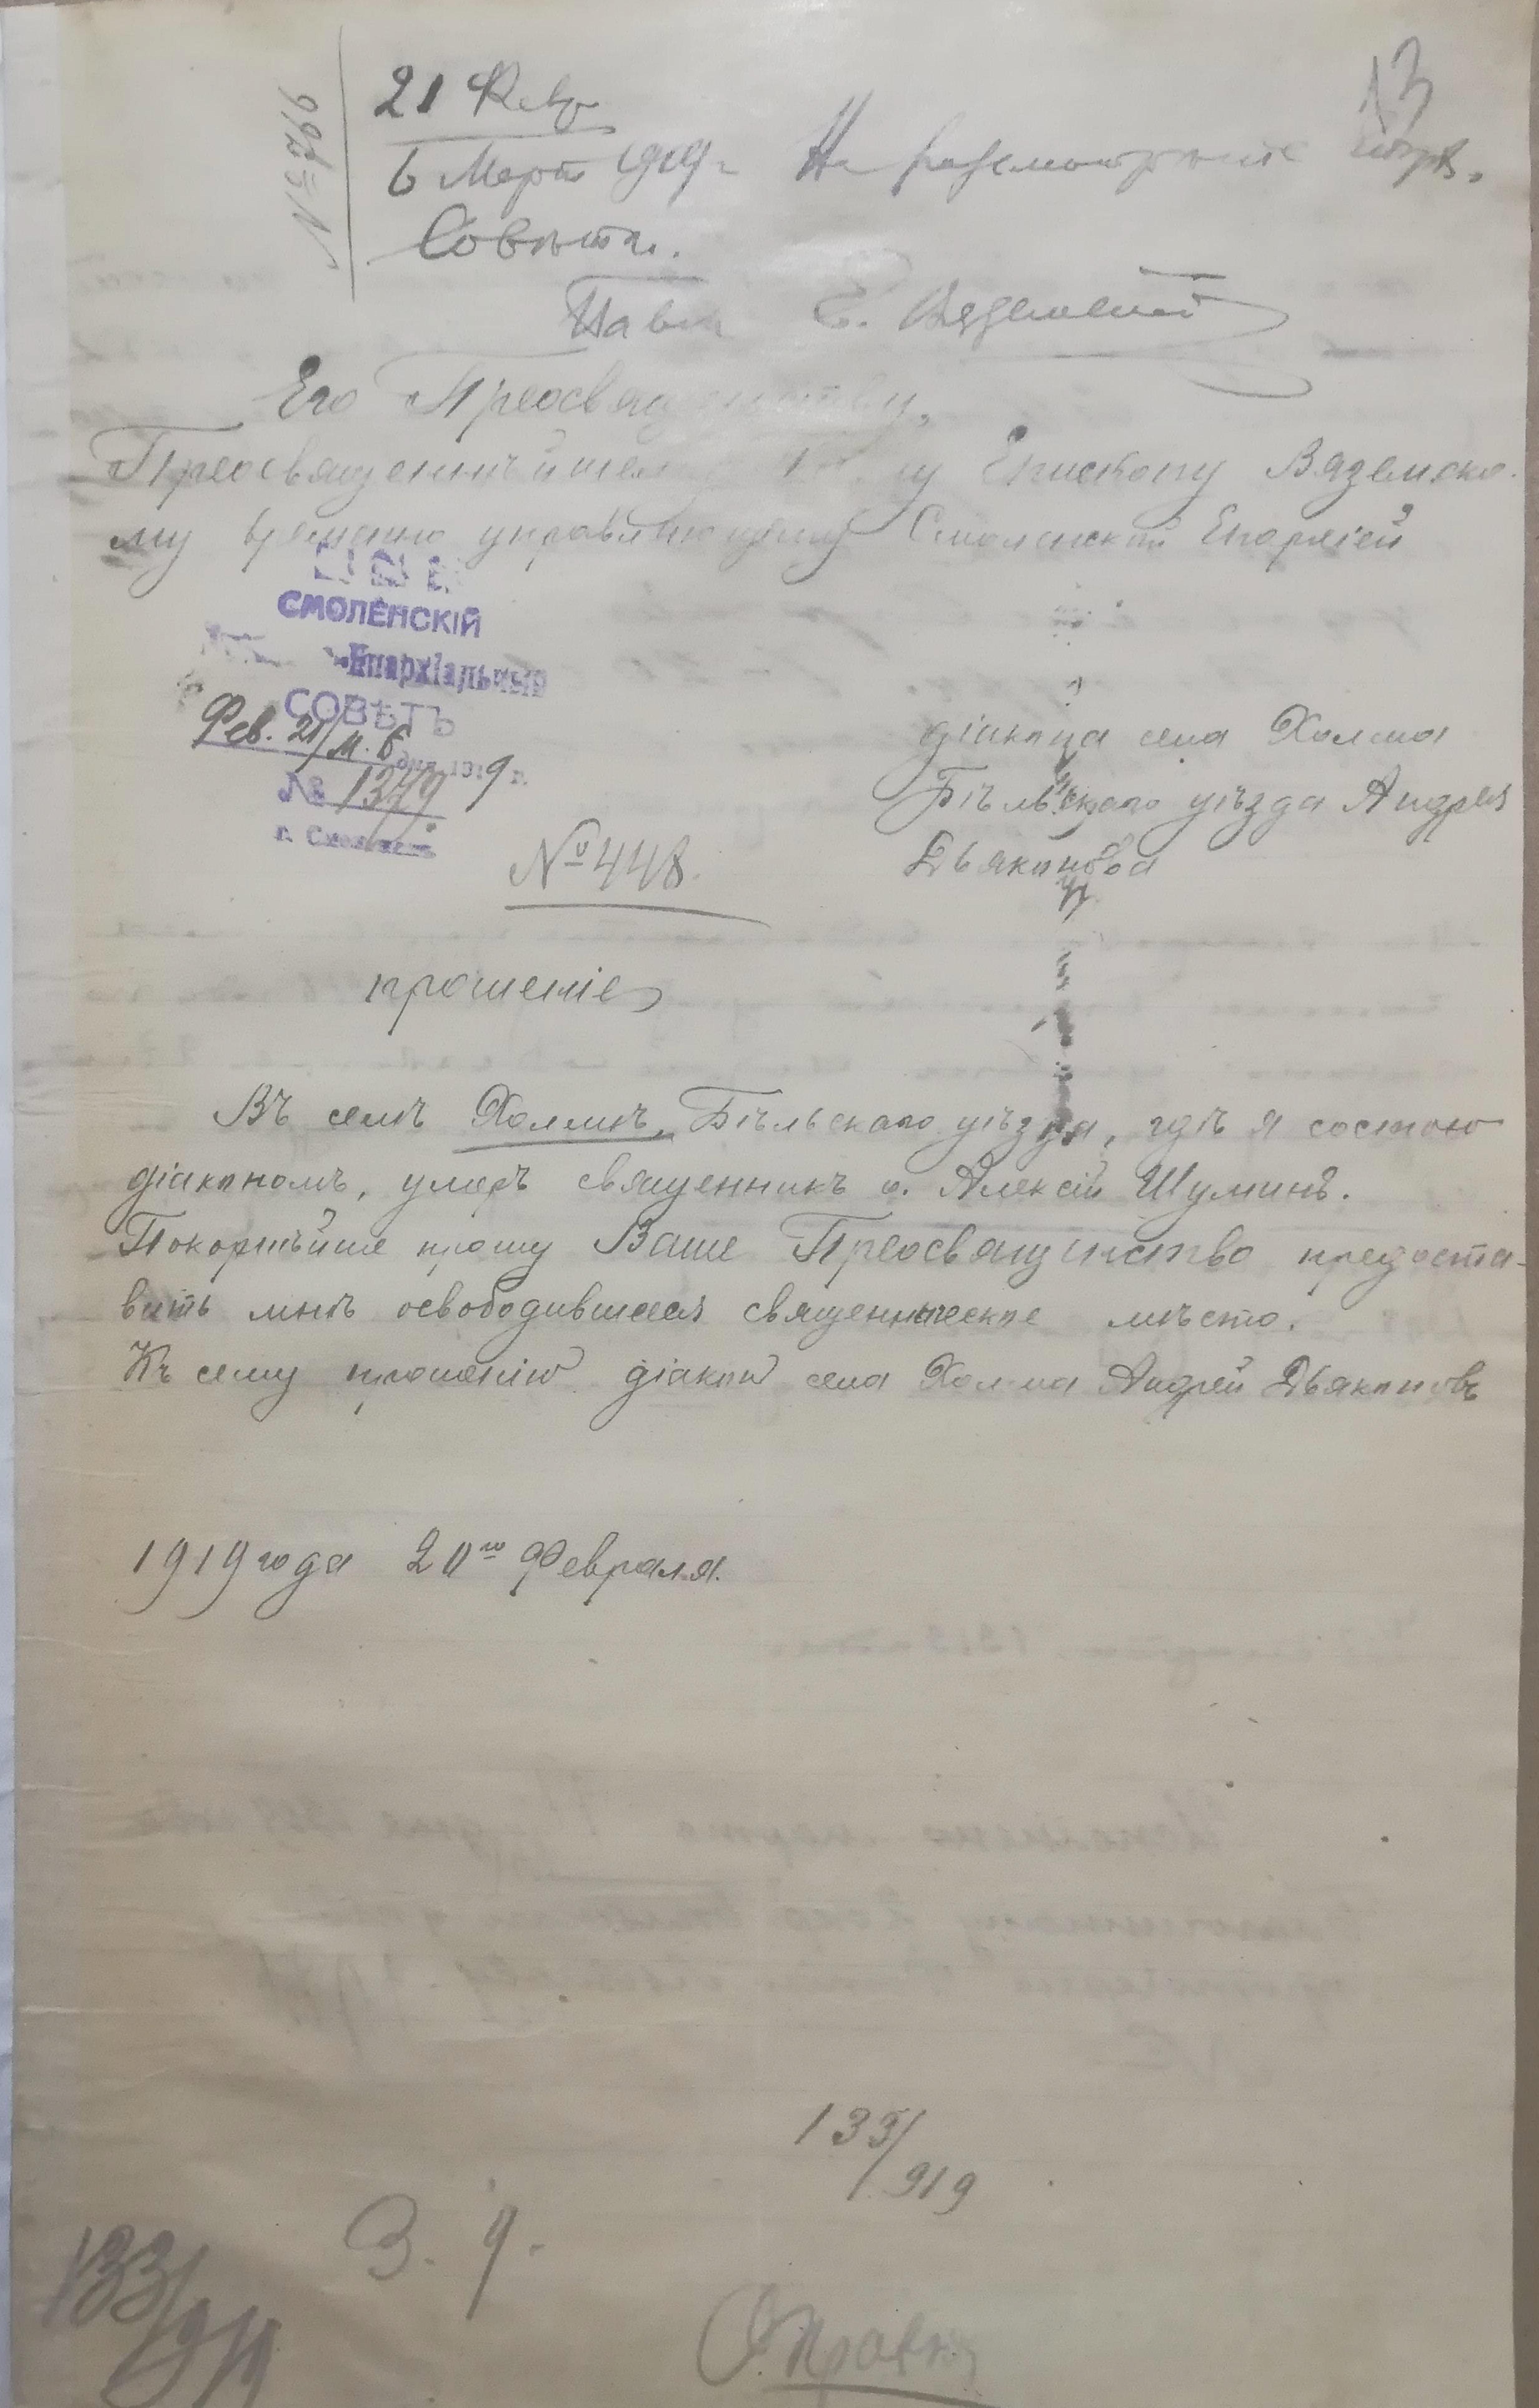 13
№ 766
21 Февр
6 Март 1919 г. На разсмотрѣніе Епарх.
Совѣта.
Павел Е. Вяземскій
Его Преосвященству,
Преосвященнѣйшему Епископу Вяземско-
му временно управляющему Смоленской Епархіей
СМОЛЕНСКІЙ
Епархіальный
СОВѢТЪ
Фев. 21/м. 6 дня 1919 г.
№ 1379
г. Смоленскъ
діакона села Холма
Бѣльскаго уѣзда Андрея
Дьяконова
№ 448.
прошеніе
Въ селѣ Холмѣ, Бѣльскаго уѣзда, гдѣ я состою
діакономъ, умеръ священникъ о. Алексій Шуминъ.
Покорнѣйше прошу Ваше Преосвященство предоста-
вить мнѣ освободившееся священническое мѣсто.
Къ сему прошенію діакон села Холма Андрей Дьяконовъ
1919 года 20го Февраля.
133/919
З. 9.
133/919
Справка